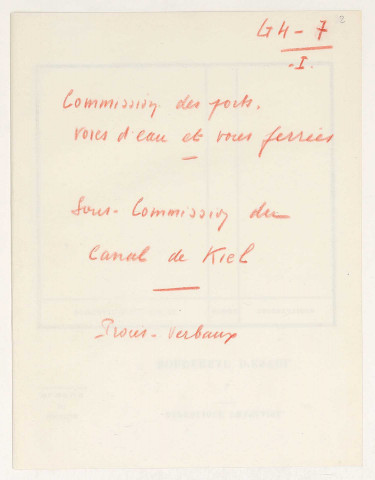 G4-7
2
-I.
Commission des ports,
voies d'eau et voies ferrées
Sous-Commission du
Canal de Kiel
Procès-Verbaux